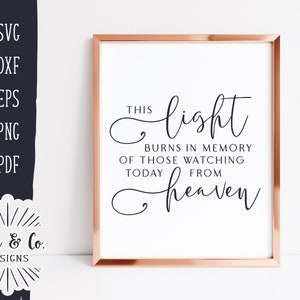 SVG
DXF
EPS
PNG
PDF
& Co.
THIS light
BURNS IN MEMORY
OF THOSE WATCHING
TODAY FROM
heaven